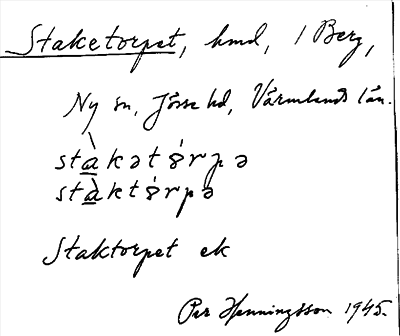 Staketorpet, hmd, 1 Berg,
Ny sn, Jösse hd, Värmlands län.
stàkətórpə
stàktórpə
Staktorpet ek
Per Henningsson 1945.